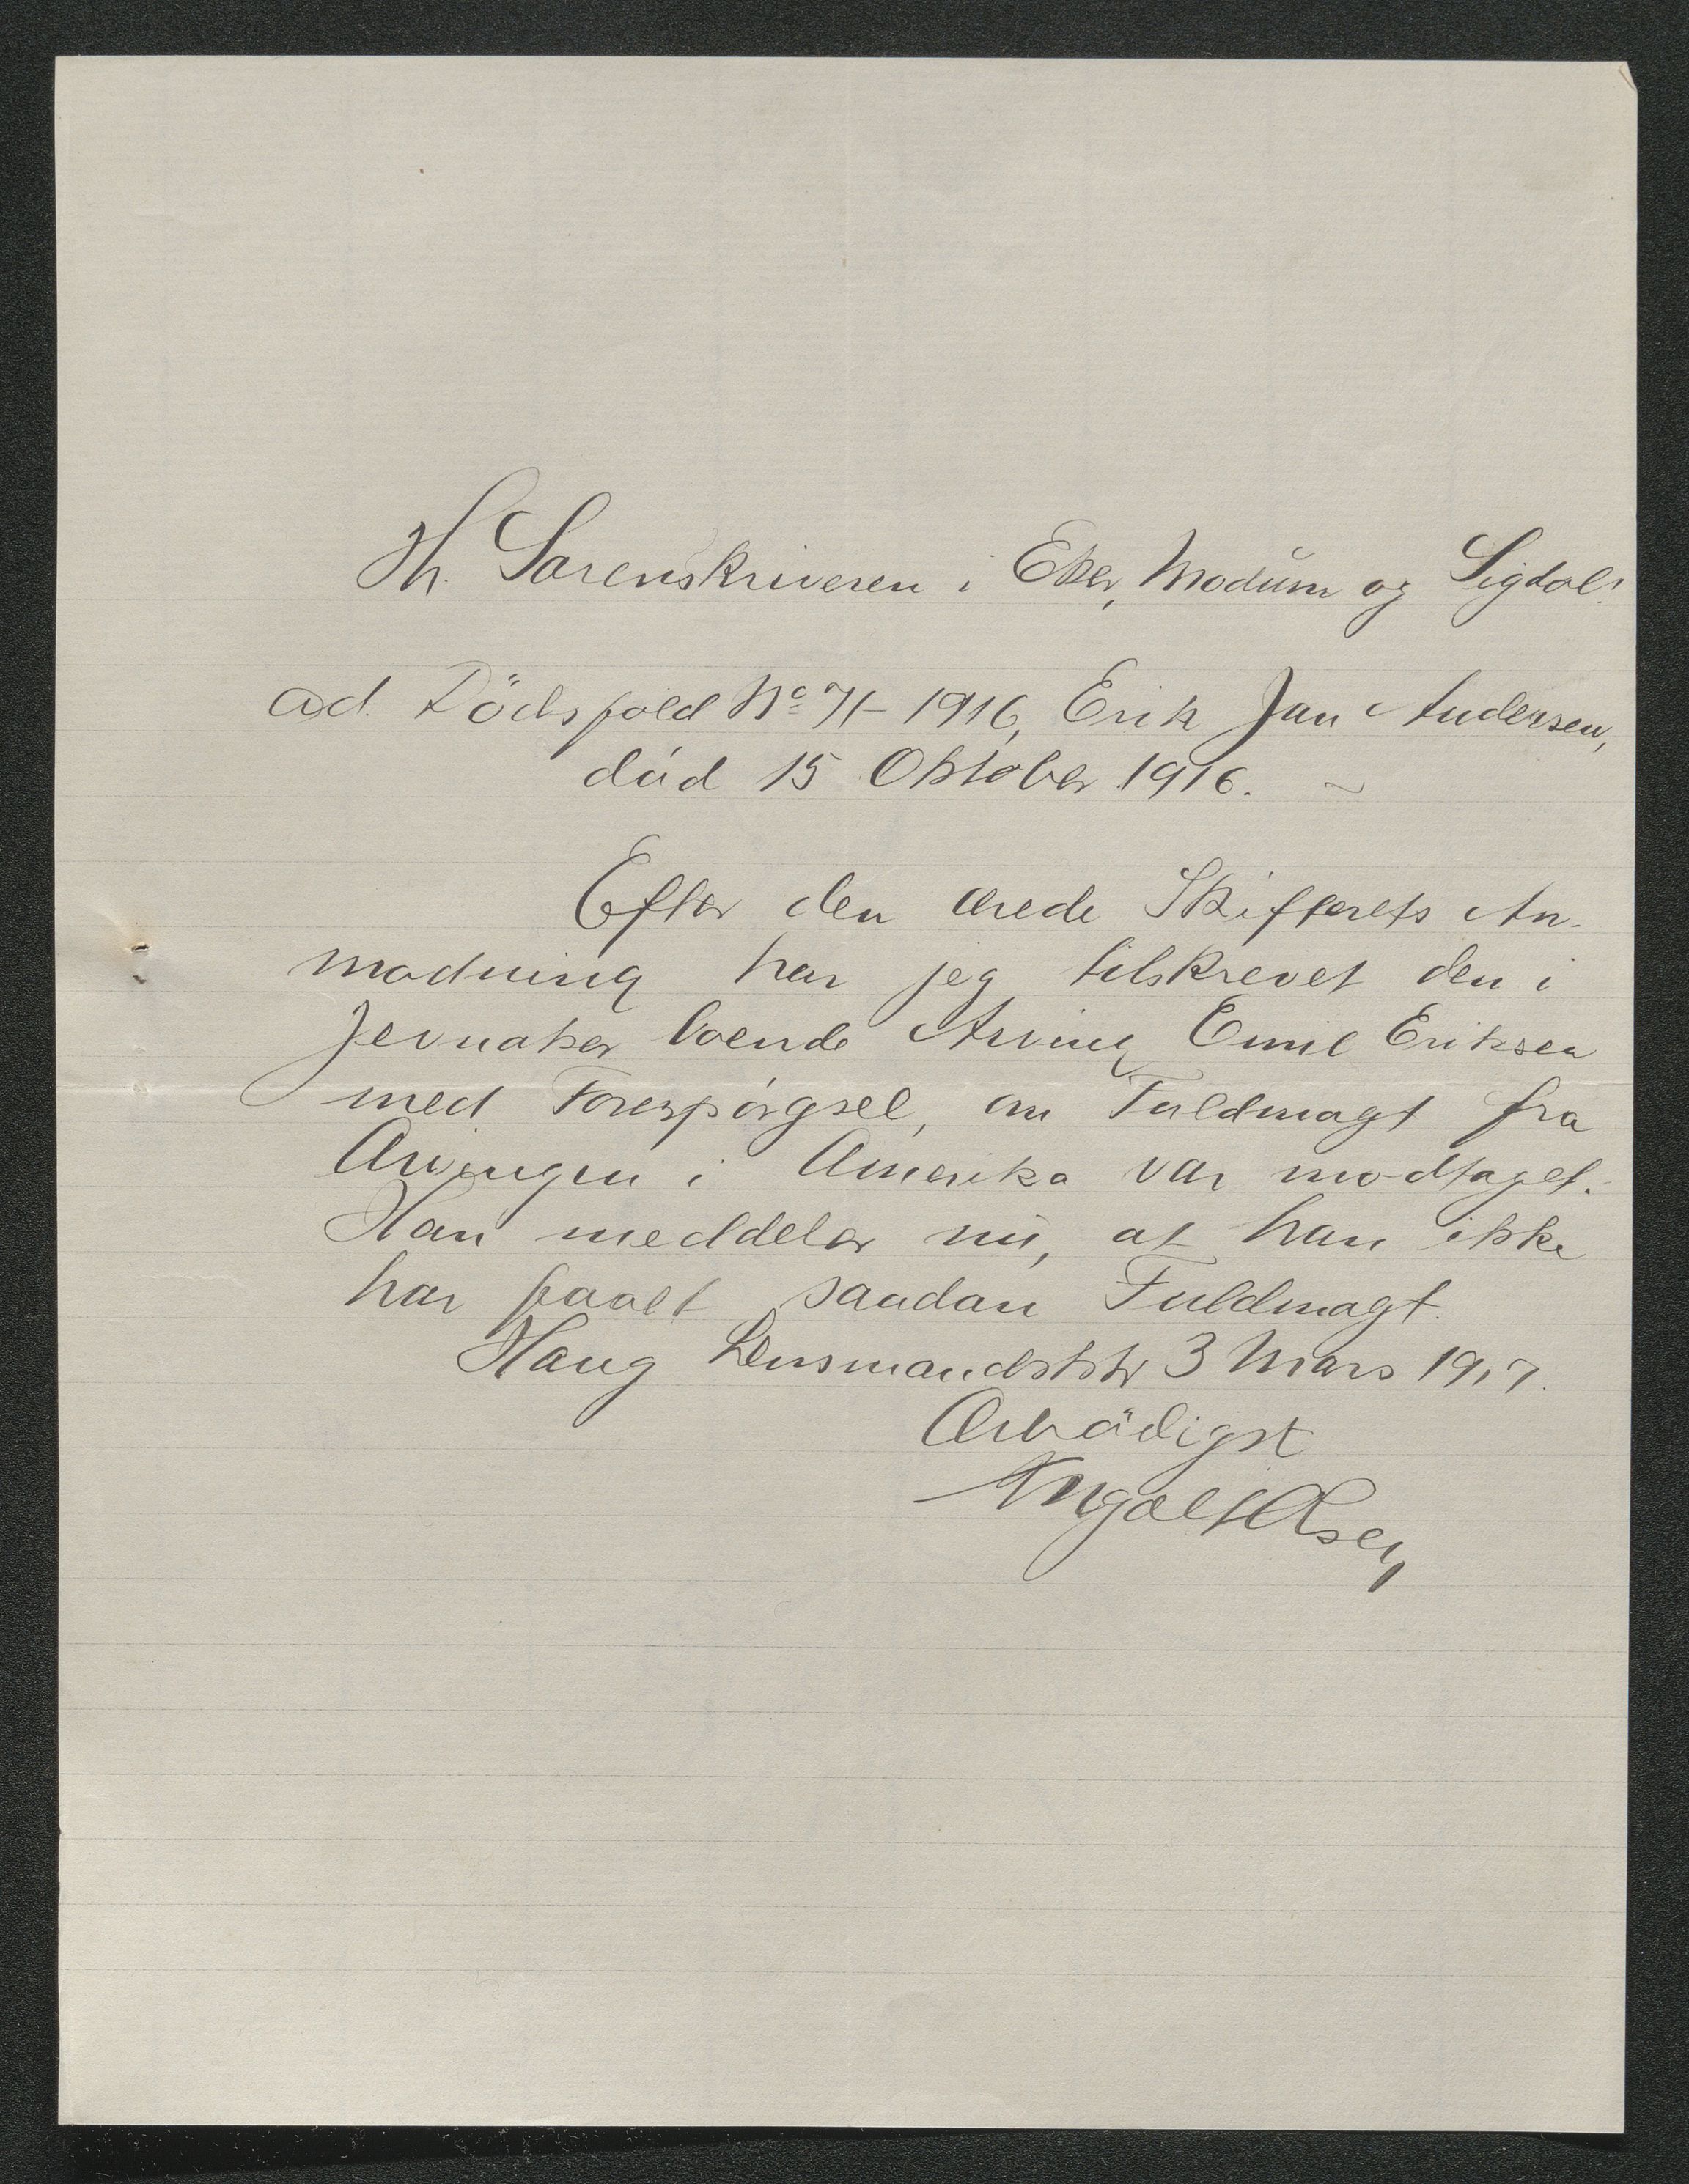 Hr. Sorenskriveren i Eker, Modum og Sigdal!
ad. Dödsfald No 71 - 1916, Erik Jan Andersen,
död 15 Oktober 1916. ~
Efter den ærede Skifterets An-
modning har jeg tilskrevet den i
Jevnaker boende Arving Emil Eriksen
med Forespørgsel, om Fuldmagt fra
Arvingen i Amerika var modtaget.
Han meddeler nu, at han ikke
har faaet saadan Fuldmagt.
Haug Lensmandsktr 3 Mars 1917.
Ærbödigst
Ingolf Olsen